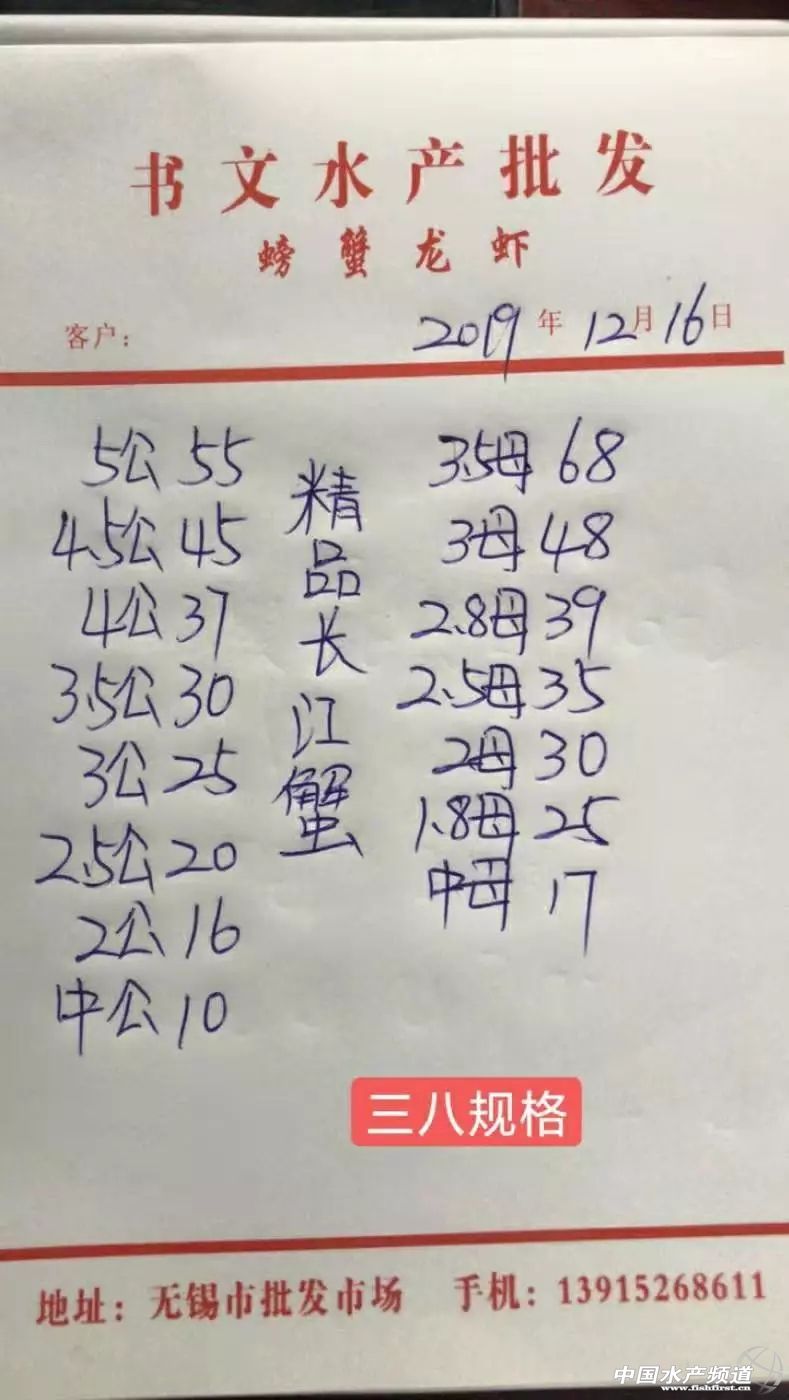 书文水产批发
螃蟹龙虾
客户: 2019年12月16日
5公 55
4.5公 45
4公 37
3.5公 30
3公 25
2.5公 20
2公 16
中公 10
精品长江蟹
3.5母 68
3母 48
2.8母 39
2.5母 35
2母 30
1.8母 25
中母 17
三八规格
地址: 无锡市批发市场 手机: 13915268611
中国水产频道
www.fishfirst.cn